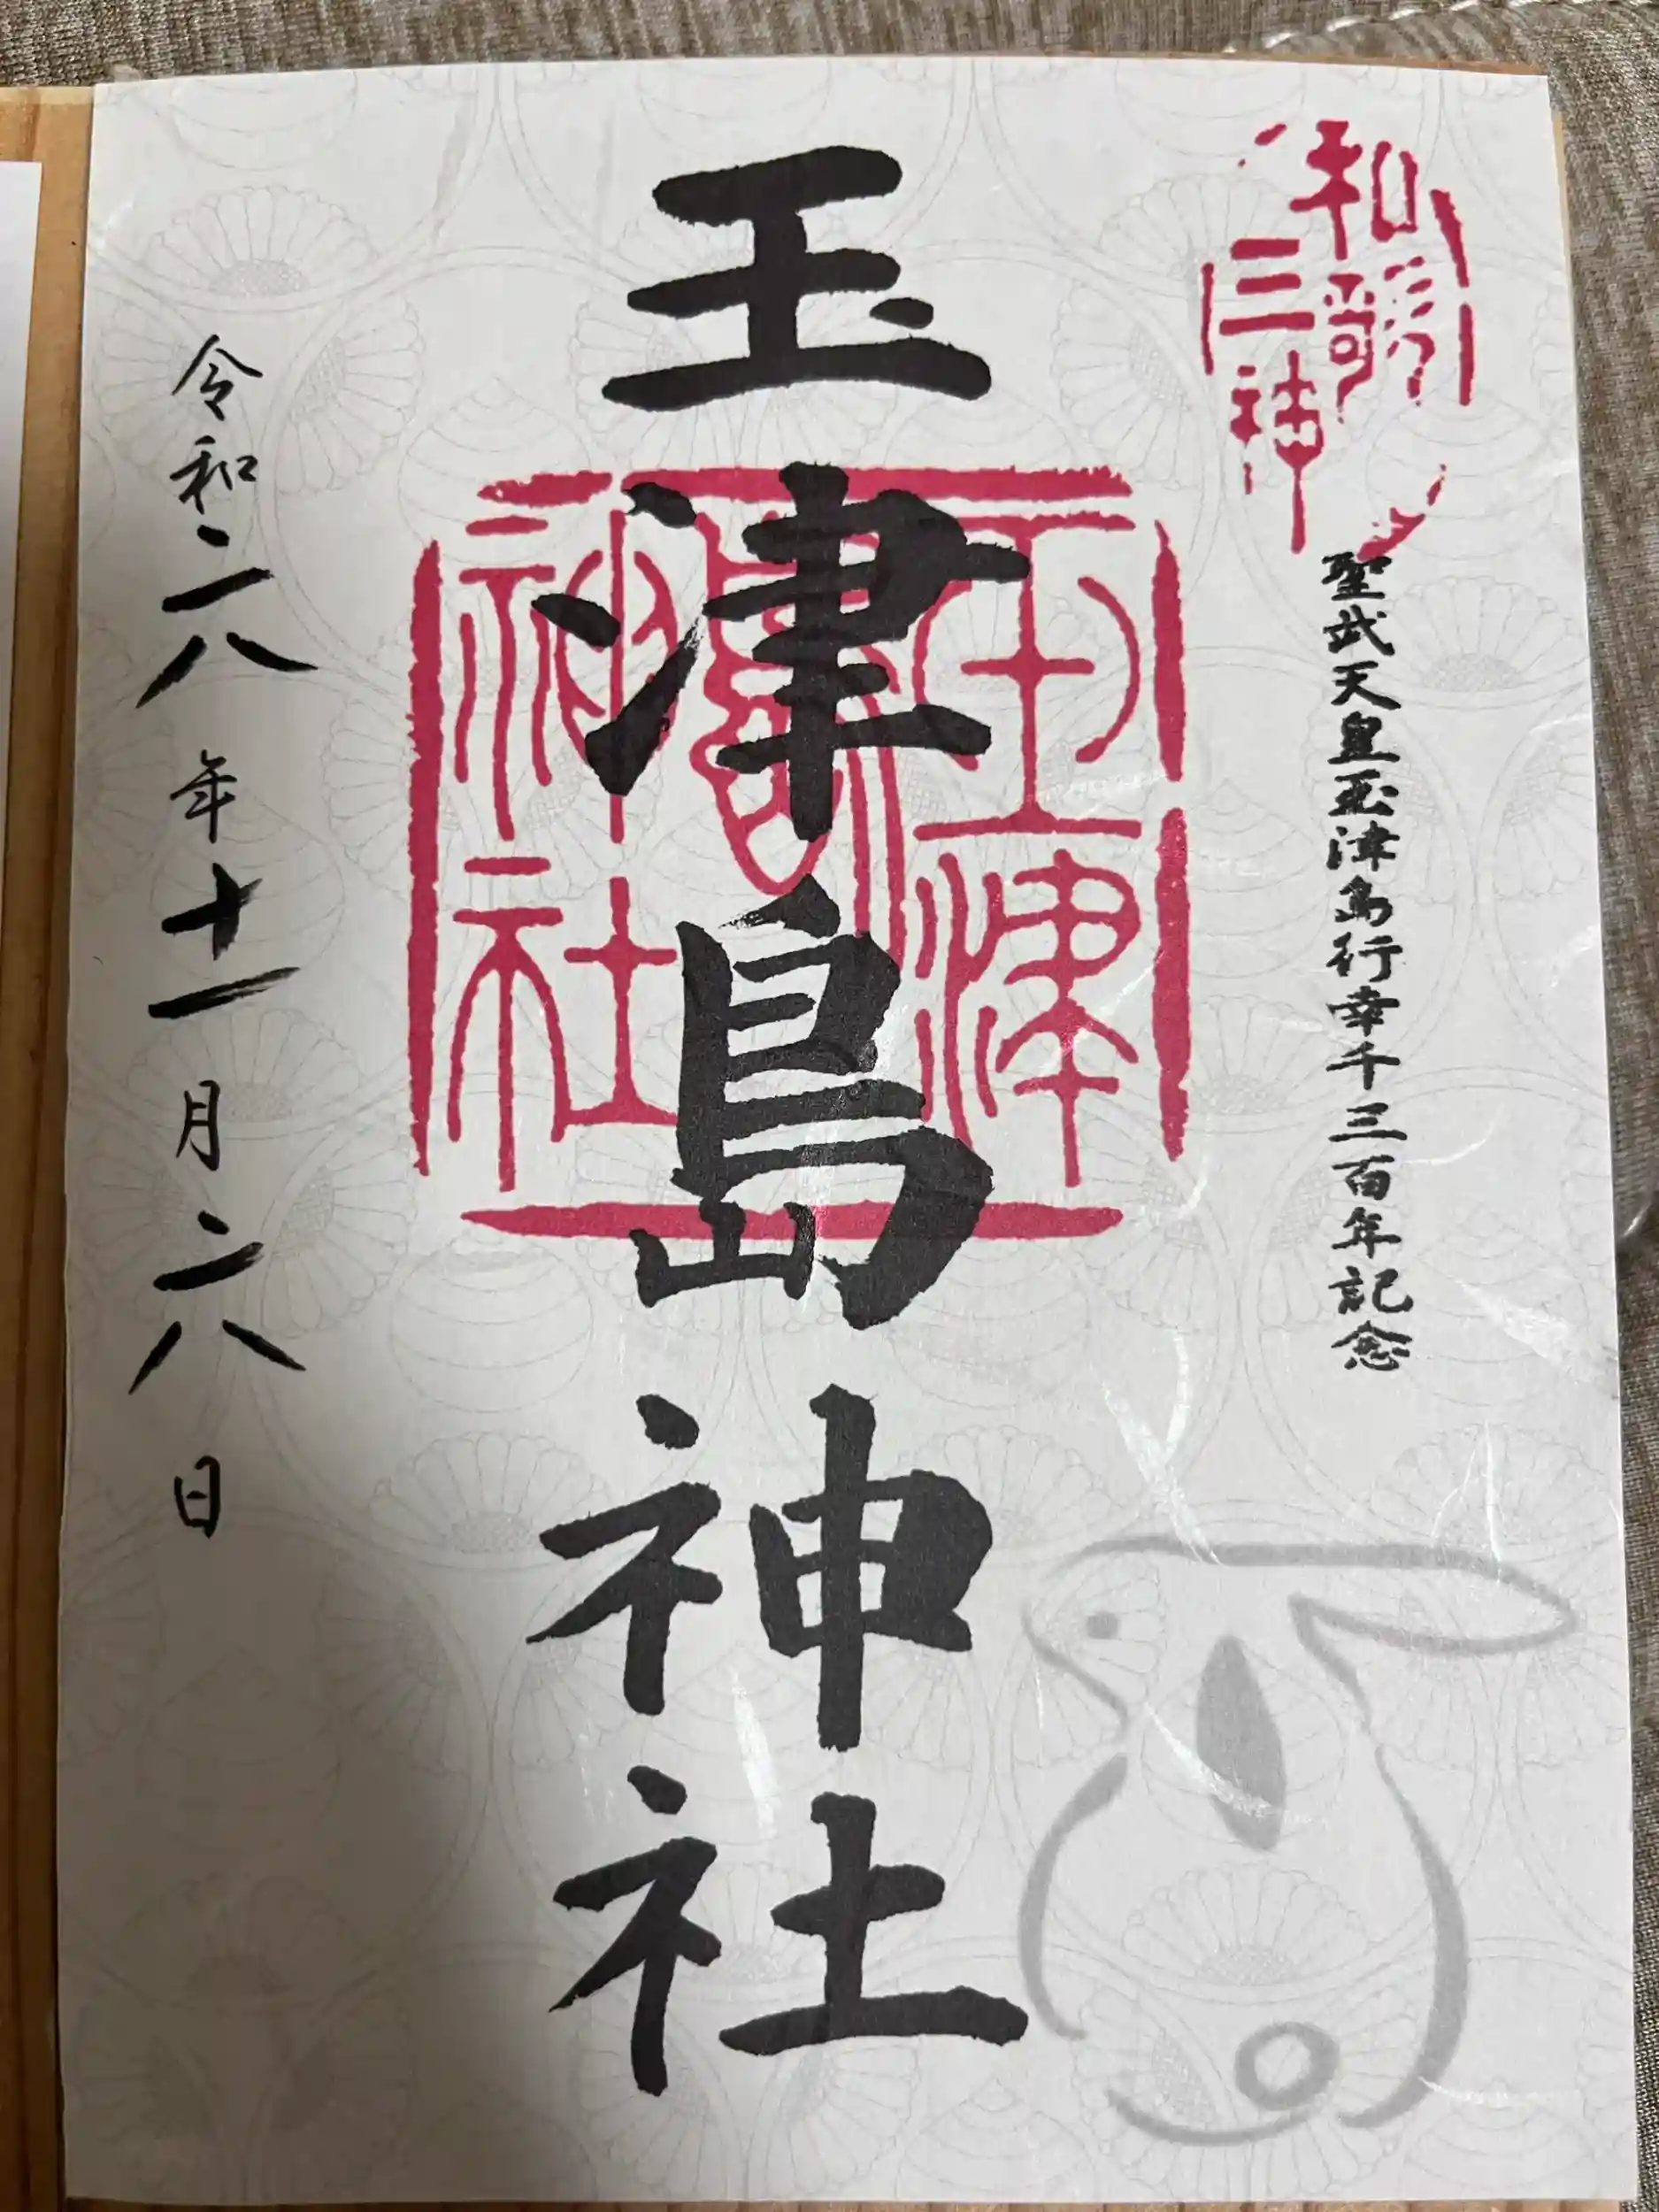 和歌
三神
聖武天皇玉津島行幸千三百年記念
玉津島神社
玉津
嶌
神社
令和六年十一月六日